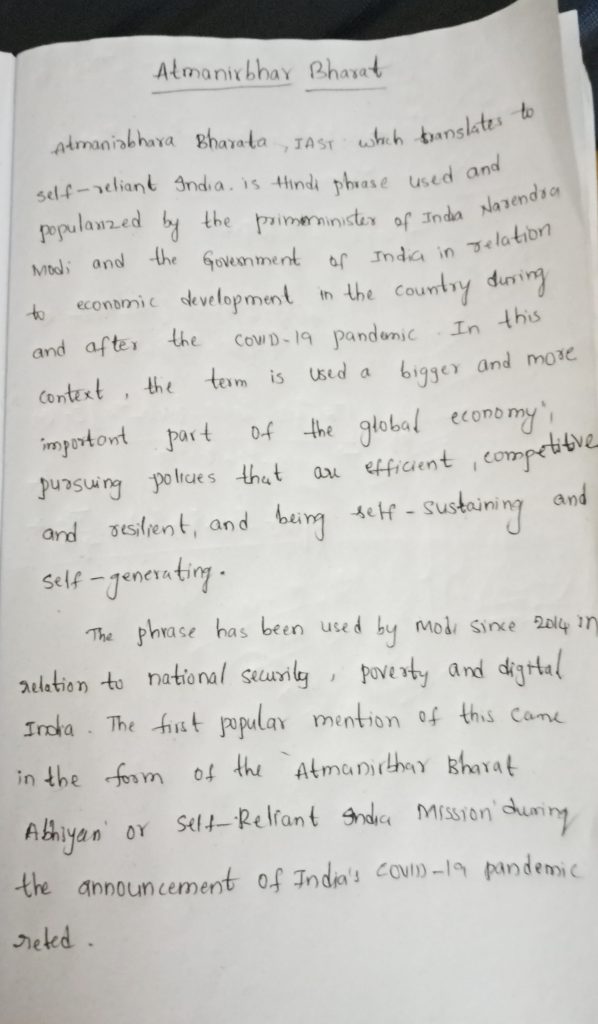 Atmanirbhar Bharat
Atmanirbhara Bharata, IAST which translates to
self-reliant India. is Hindi phrase used and
popularized by the primeminister of India Narendra
Modi and the Government of India in relation
to economic development in the country during
and after the COVID-19 pandemic. In this
context, the term is used a bigger and more
important part of the global economy",
pursuing policies that are efficient, competitive
and resilient, and being self-sustaining and
self-generating.
The phrase has been used by Modi since 2014 in
relation to national security, poverty and digital
India. The first popular mention of this came
in the form of the 'Atmanirbhar Bharat
Abhiyan' or Self-Reliant India Mission' during
the announcement of India's COVID-19 pandemic
reted.